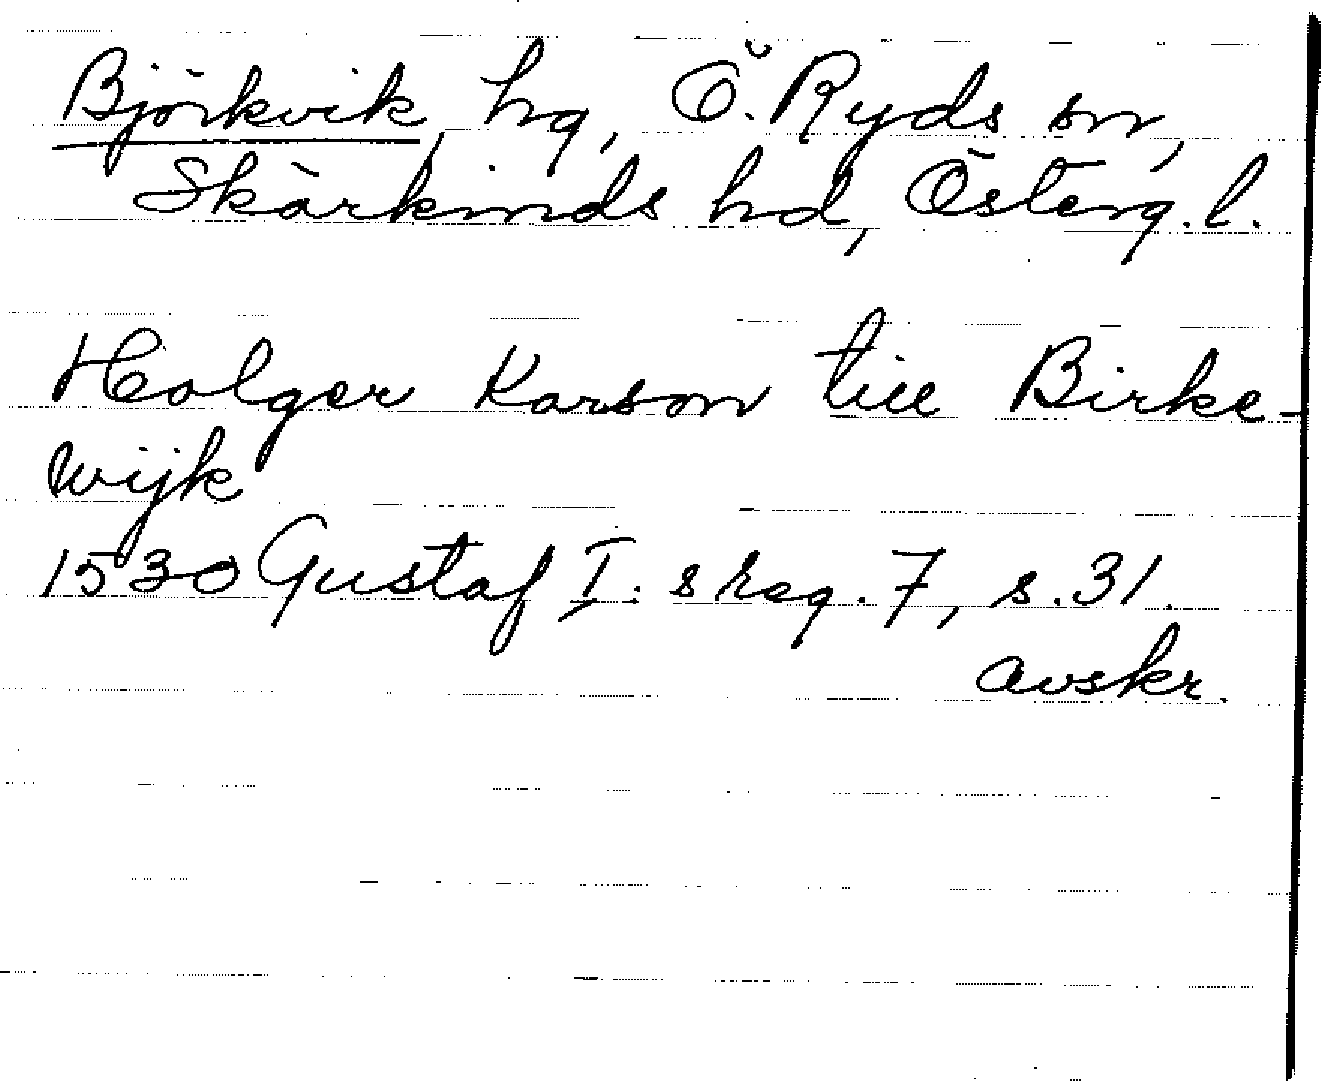 Björkvik, hg, Ö. Ryds sn,
Skärkinds hd, Österg. l.
Holger Karson till Birke-
wijk
1530 Gustaf I:s reg. 7, s. 31.
avskr.